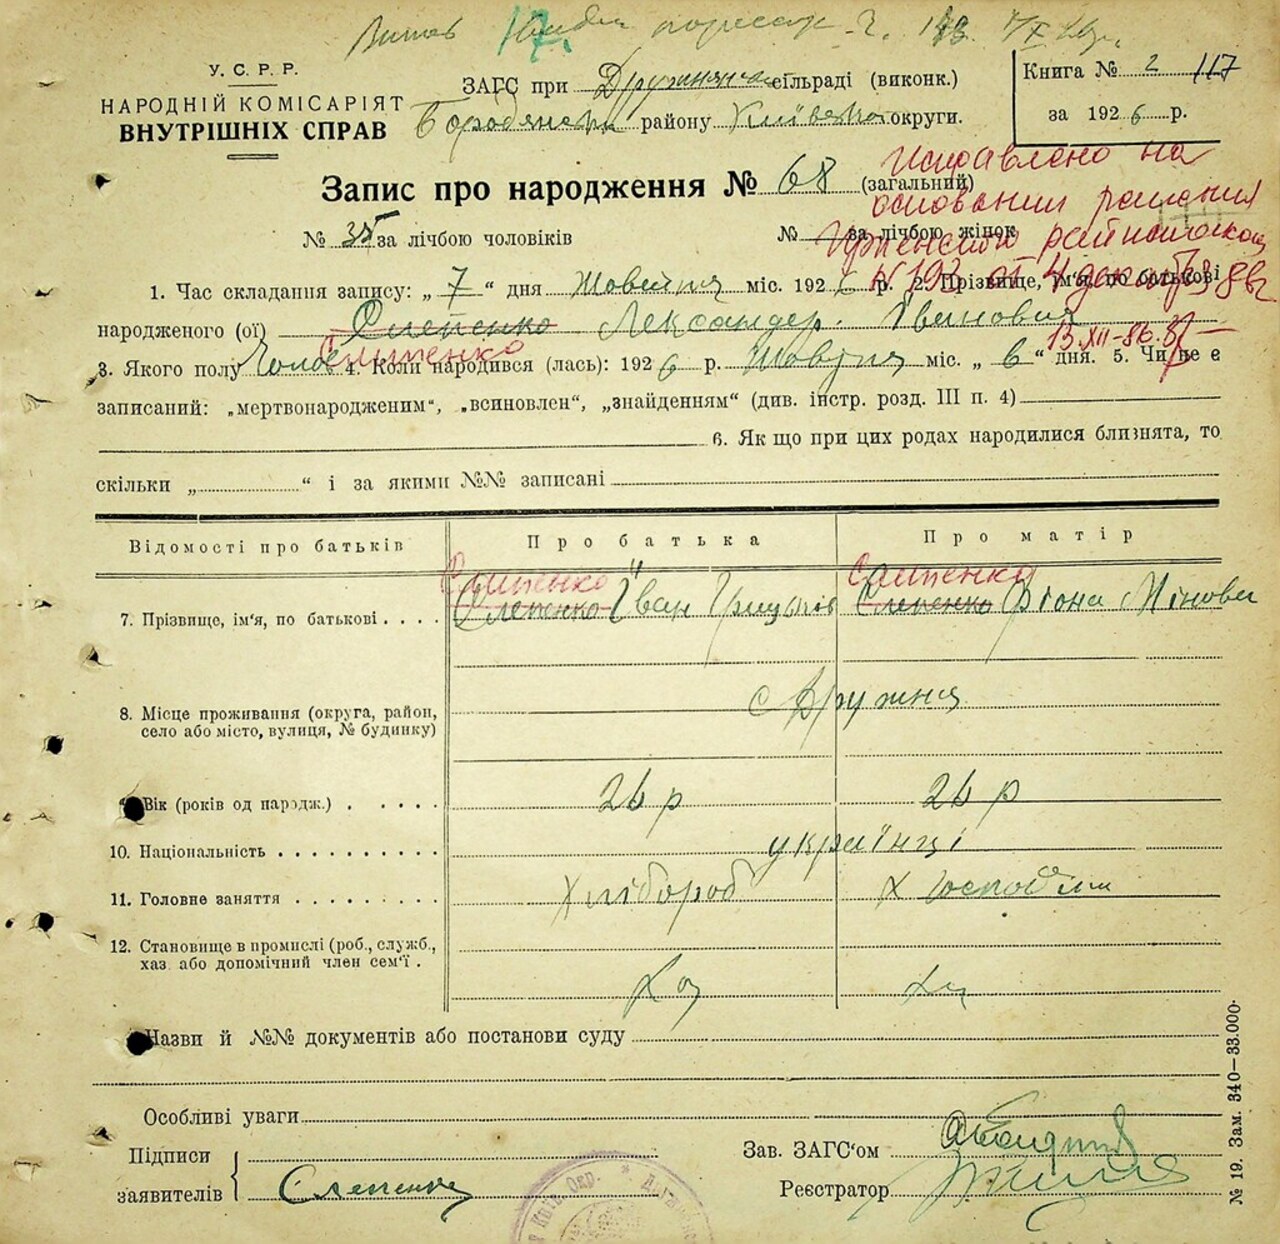 Витяг
17.
У. С. Р. Р.
НАРОДНІЙ КОМІСАРІЯТ
ВНУТРІШНІХ СПРАВ
ЗАГС при Дружнянск сільраді (виконк.)
Бородянськ району Київсько округи.
Книга № 2 117
за 1926 р.
Исправлено на
основании решения
Ирпенского райисполкома
N 193 от 4 декабря 38 г
13.XII-86.
Запис про народження № 68 (загальний)
№ 35 за лічбою чоловіків
№ за лічбою жінок
1. Час складання запису: „ 7 “ дня Жовтня міс. 1926 р. 2. Прізвище, ім‘я, по батькові
народженого (ої) Слепенко Лександер. Іванович
Слипенко
3. Якого полу Чолов 4. Коли народився (лась): 1926 р. Жовтня міс. „ 6 “ дня. 5. Чи не є
записаний: „мертвонародженим“, „всиновлен“, „знайденням“ (див. інстр. розд. III п. 4)
6. Як що при цих родах народилися близнята, то
скільки „ “ і за якими №№ записані
Відомості про батьків
Про батька
Про матір
Слипенко
Слипенко
7. Прізвище, ім‘я, по батькові . . . .
Слепенко Іван Грицьків
Слепенко Фіона Мінови
8. Місце проживання (округа, район,
село або місто, вулиця, № будинку)
с Дружня
9. Вік (років од народж.) . . . . .
26 р
26 р
10. Національність . . . . . . . . . .
українці
11. Головне заняття . . . . . . . . .
Хлібороб
Х Господин
12. Становище в промислі (роб., служб.,
хаз або допомічний член сем‘ї .
Хаз
Назви й №№ документів або постанови суду
Особливі уваги
Підписи
заявителів
Слепенко
Зав. ЗАГС‘ом
Реєстратор
Київ. Окр. *
№ 19. Зам. 340—33.000.